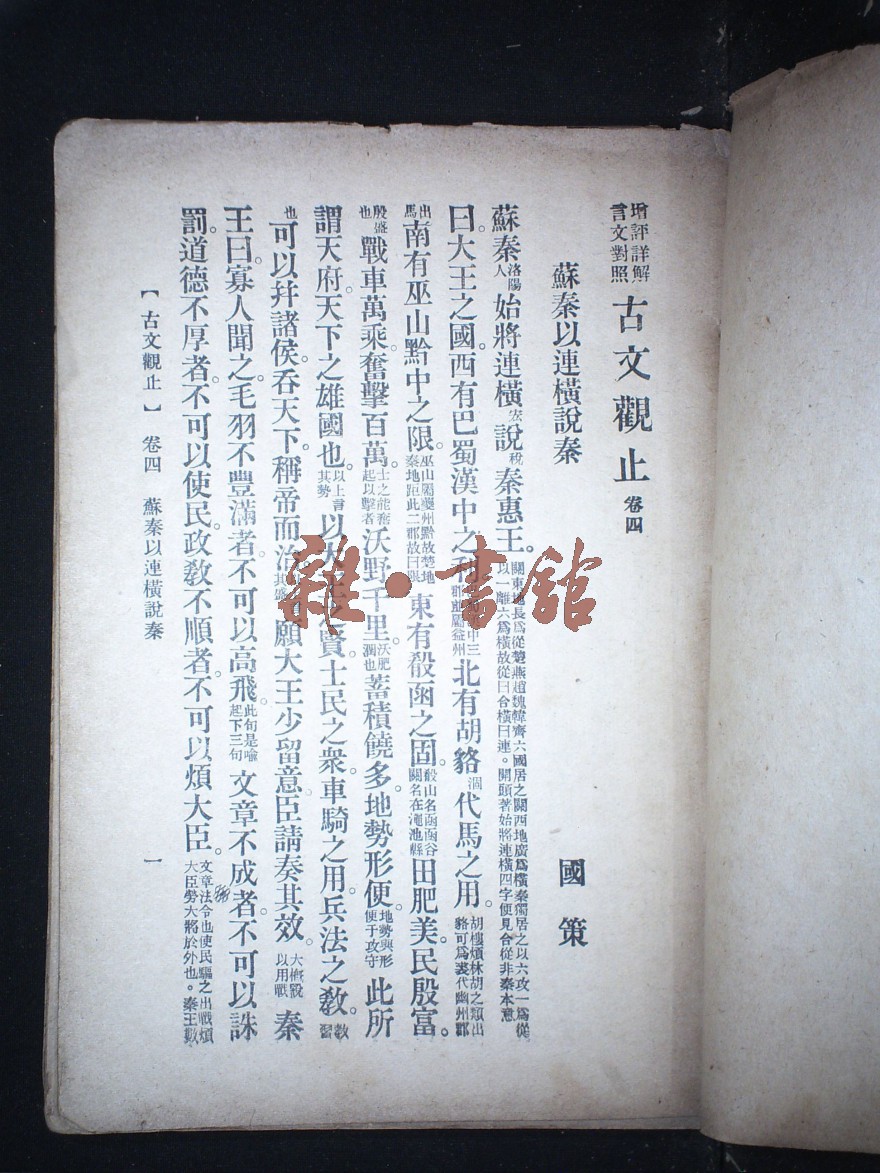 增評詳解言文對照 古文觀止 卷四
蘇秦以連橫說秦 國策
蘇秦洛陽人始將連橫說稅秦惠王。關東地長爲從楚燕趙魏韓齊六國居之關西地廣爲橫秦獨居之以六攻一爲從以一離六爲橫故從曰合橫曰連。開頭著始將連橫四字便見合從非秦本意
曰大王之國西有巴蜀漢中之利北有胡貉代馬之用。胡樓煩林胡之類出貉可爲裘代幽州郡
出馬南有巫山黔中之限。巫山屬夔州黔故楚地秦地距此二郡故曰限東有殽函之固。殽山名函函谷關名在澠池縣田肥美民殷富。
殷盛也戰車萬乘。奮擊百萬。士之能奮起以擊者沃野千里。沃肥潤也蓄積饒多。地勢形便地勢與形便于攻守此所
謂天府。天下之雄國也。以上言其勢以大王之賢。士民之衆。車騎之用。兵法之教。教習
也可以幷諸侯。呑天下。稱帝而治願大王少留意臣請奏其效。大槪說以用戰秦
王曰。寡人聞之。毛羽不豐滿者。不可以高飛。此句是喩起下三句文章不成者。不可以誅
罰。道德不厚者。不可以使民。政教不順者。不可以煩大臣。文章法令也使民驅之出戰煩大臣勞大將於外也。秦王數
【古文觀止】 卷四 蘇秦以連橫說秦 一
雜·書館